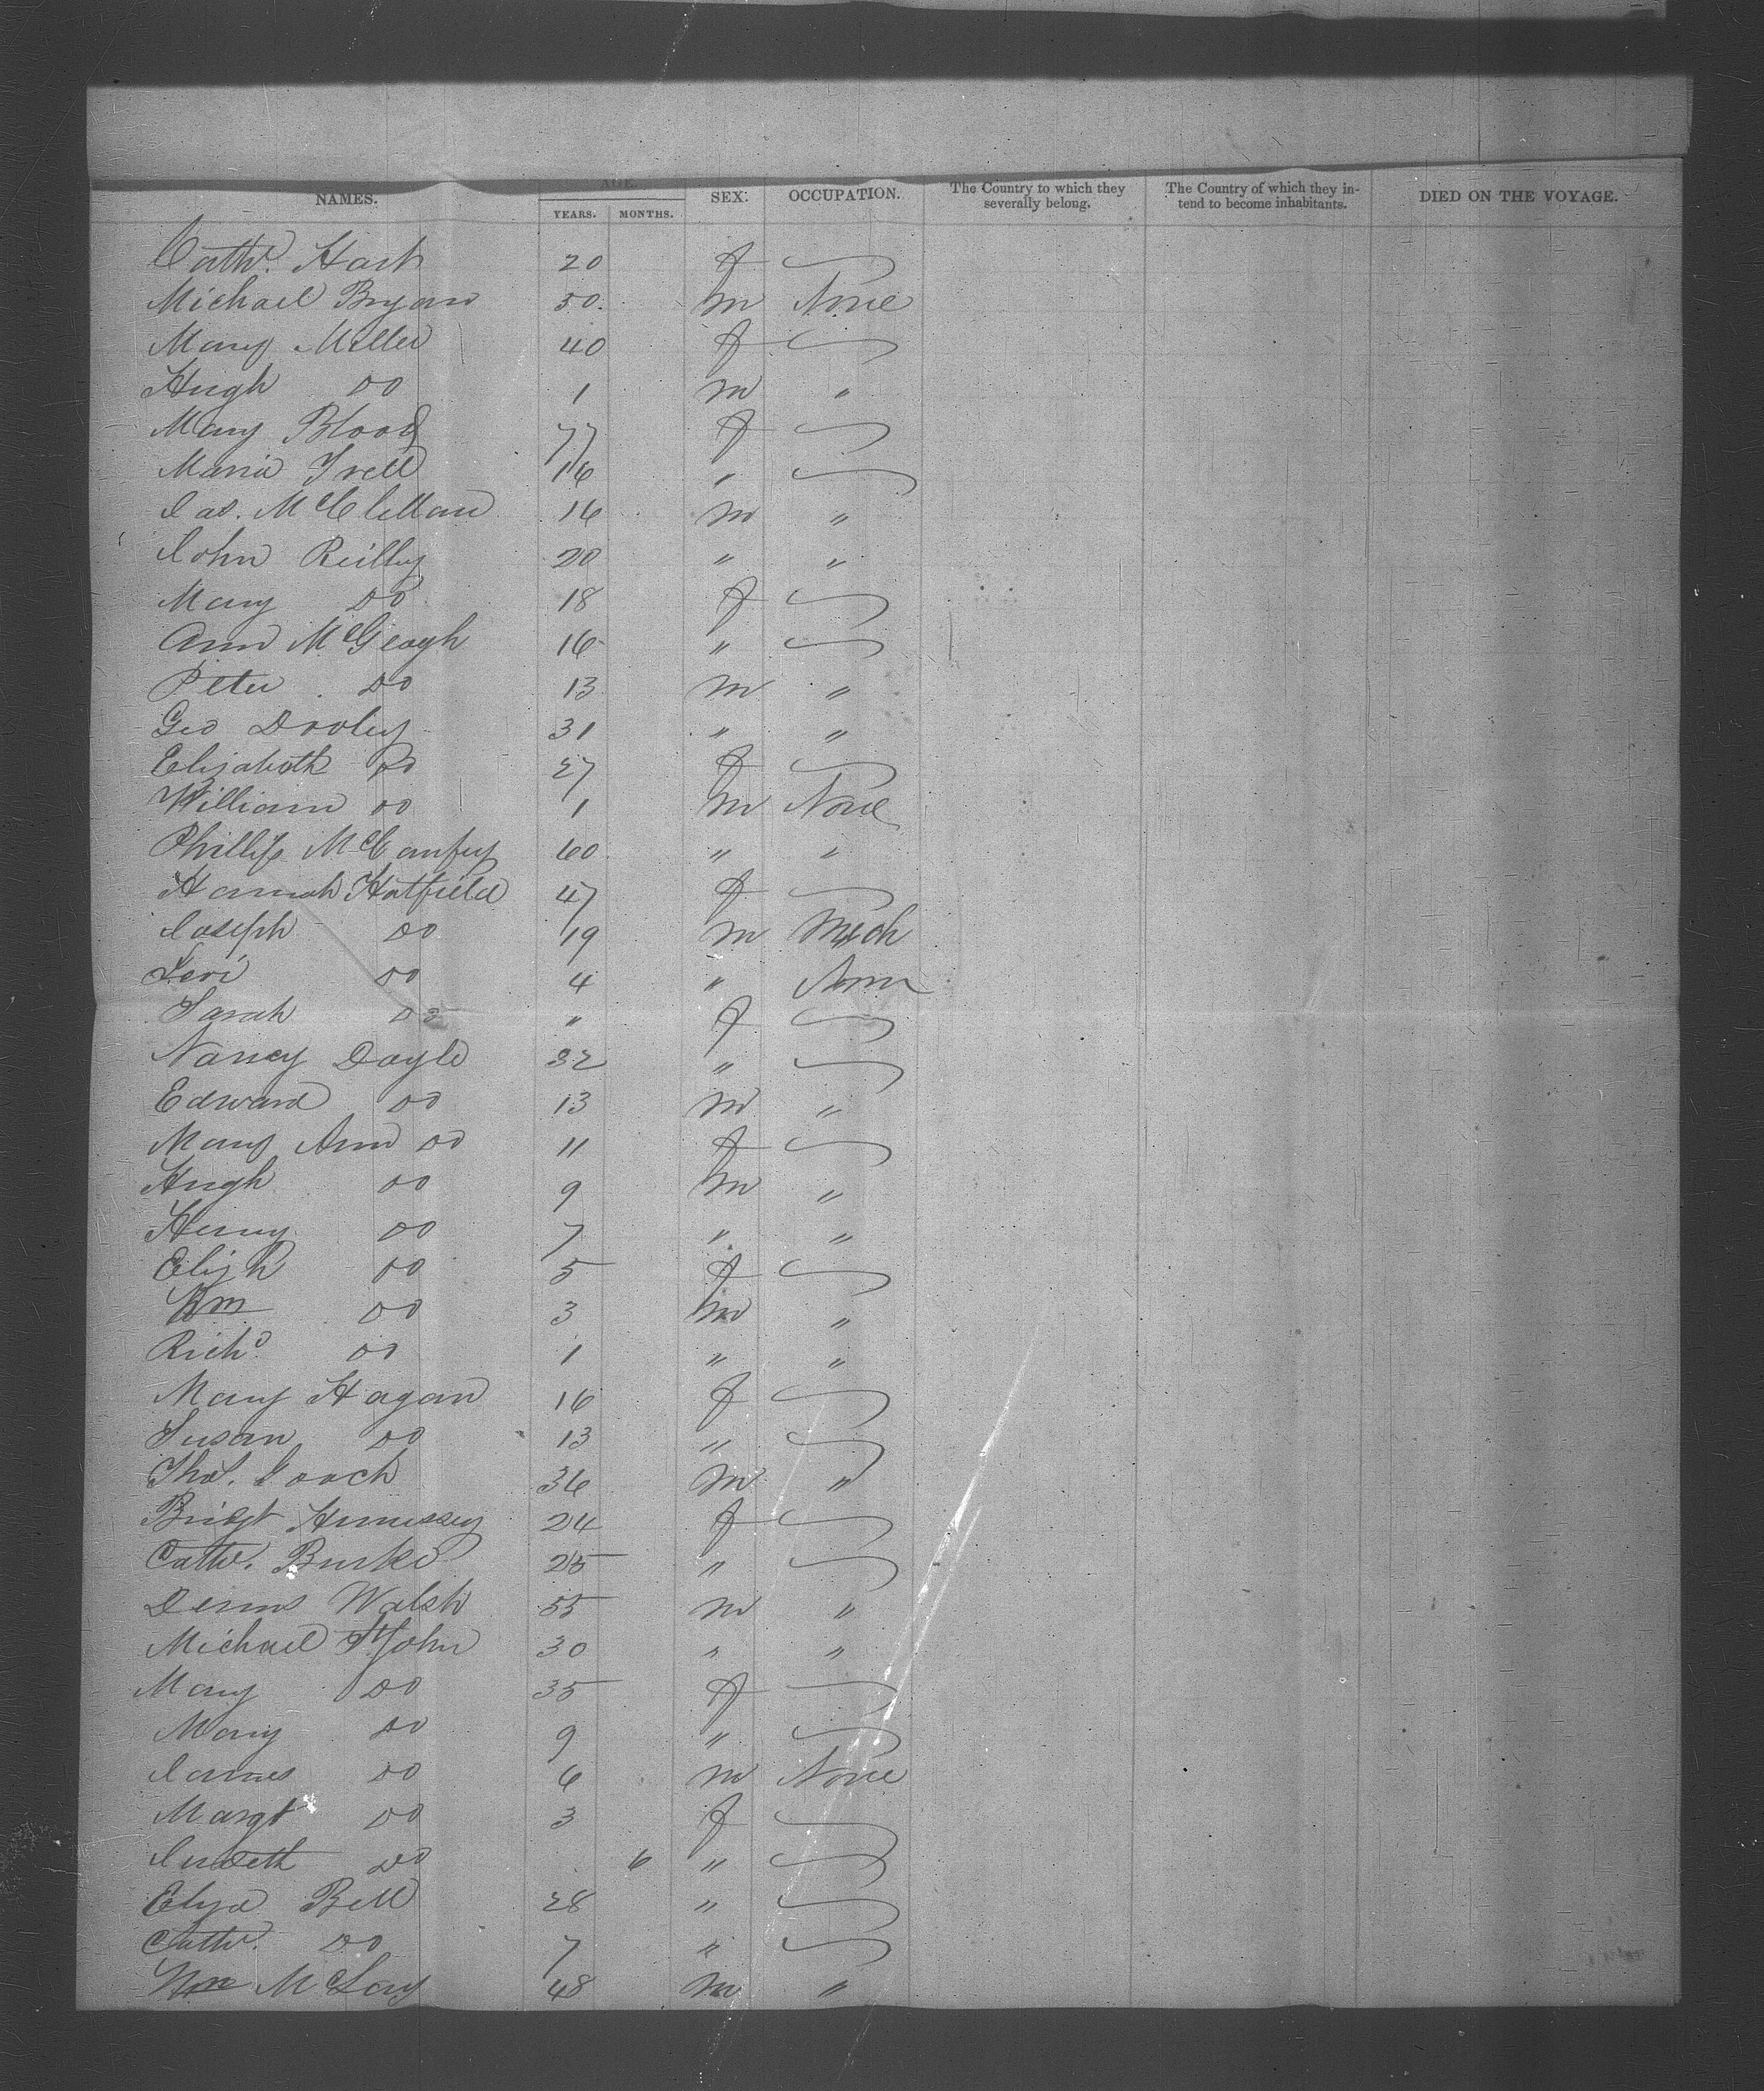 NAMES. AGE. SEX. OCCUPATION. The Country to which they severally belong. The Country of which they intend to become inhabitants. DIED ON THE VOYAGE.
YEARS. MONTHS.
Cathe. Hart 20 f
Michael Bryan 50. m None
Mary Miller 40 f
Hugh Do 1 m "
Mary Blood 77 f
Maria 16 "
Jas. McClellan 16 m "
John Reilly 20 " "
Mary Do 18 f
Ann McGeogh 16 "
Peter Do 13 m "
Geo Dooley 31 " "
Elizabeth Do 27 f
William Do 1 m None
Phillip 60 " "
Hannah Hatfield 47 f
Joseph Do 19 m Mech
Levi Do 4 " None
Sarah Do " f
Nancy Doyle 32 "
Edward Do 13 m "
Mary Ann Do 11 f
Hugh Do 9 m "
Henry Do 7 " "
Elizh Do 5 f
Wm Do 3 m "
Richd. Do 1 " "
Mary Hagan 16 f
Susan Do 13 "
Thos. 36 m "
Bridgt Hennessey 24 f
Cathe. Burke 25 "
Dennis Walsh 55 m "
Michael St John 30 " "
Mary Do 35 f
Mary Do 9 "
James Do 6 m None
Margt Do 3 f
Do 6 "
Eliza Bell 28 "
Cathe. Do 7 "
Wm McLay 48 m "